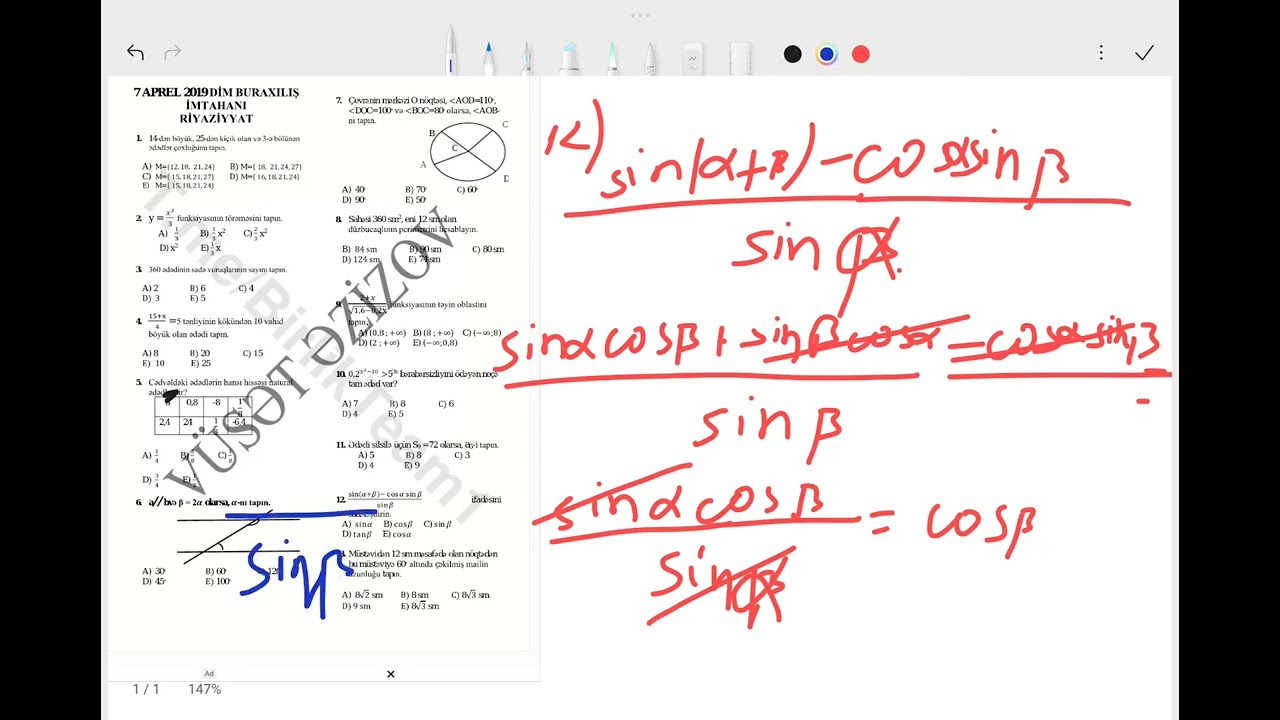 7 APREL 2019 DİM BURAXILIŞ
İMTAHANI
RİYAZİYYAT
1. 14-dən böyük, 25-dən kiçik olan və 3-ə bölünən
ədədlər çoxluğunu tapın.
A) M={12,18, 21,24} B) M={ 18, 21,24,27}
C) M={ 15,18,21,27} D) M={ 16,18,21,24}
E) M={ 15,18,21,24}
2. y = x³/3 funksiyasının törəməsini tapın.
A) 1/3 B) 1/3 x² C) 2/3 x²
D) x² E) 1/3 x
3. 360 ədədinin sadə vuruqlarının sayını tapın.
A) 2 B) 6 C) 4
D) 3 E) 5
4. 15+x/4 =5 tənliyinin kökündən 10 vahid
böyük olan ədədi tapın.
A) 8 B) 20 C) 15
E) 10 E) 25
5. Cədvəldəki ədədlərin hansı hissəsi natural
0,8 -8
2,4 24 -6,4
A) 1/4 C) 1/8
D) 3/4
6. a//b və β = 2α olarsa, α-nı tapın.
A) 30° B) 60° 120
D) 45° E) 100°
7. Çevrənin mərkəzi O nöqtəsi, <AOD=110°,
<DOC=100° və <BOC=80° olarsa, <AOB-
ni tapın.
B C
C
A
D
A) 40° B) 70° C) 60°
D) 90° E) 50°
8. Sahəsi 360 sm², eni 12 sm olan
düzbucaqlının perimetrini hesablayın.
B) 84 sm B) 90 sm C) 80 sm
D) 124 sm E) 74 sm
9. 2+x/√1,6−0,2x funksiyasının təyin oblastını
tapın.
A) (0,8 ; +∞) B) (8 ; +∞) C) (−∞; 8)
D) (2 ; +∞) E) (−∞; 0,8)
10. bərabərsizliyini ödəyən neçə
tam ədəd var?
A) 7 B) 8 C) 6
D) 4 E) 5
11. Ədədi silsilə üçün S₉ =72 olarsa, tapın.
A) 5 B) 8 C) 3
D) 4 E) 9
12. sin(α+β)− cos α sin β/sinβ ifadəsini
A) sinα B) cosβ C) sin β
D) tanβ E) cosα
Müstəvidən 12 sm məsafədə olan nöqtədən
bu müstəviyə 60° altında çəkilmiş mailin
uzunluğu tapın.
A) 8√2 sm B) 8 sm C) 8√3 sm
D) 9 sm E) 8√3 sm
VÜSƏT ƏZİZOV
sin β
12)
sin(α+β) − cosα sin β
sin
sinα cosβ + sinβ cosα − cosα sin β
sin β
sinα cosβ = cosβ
sin
Ad
1 / 1 147%